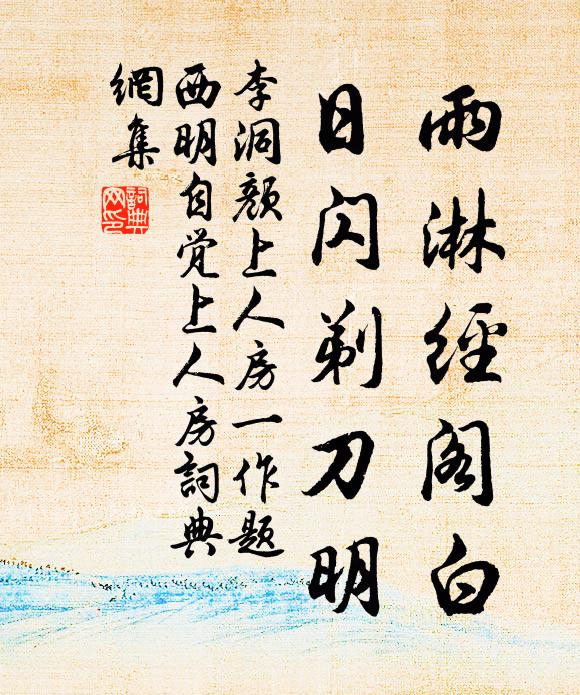 雨淋經阁白
日闪剃刀明
李洞颜上人房一作題
西明自觉上人房詞典
網集
詞典网印